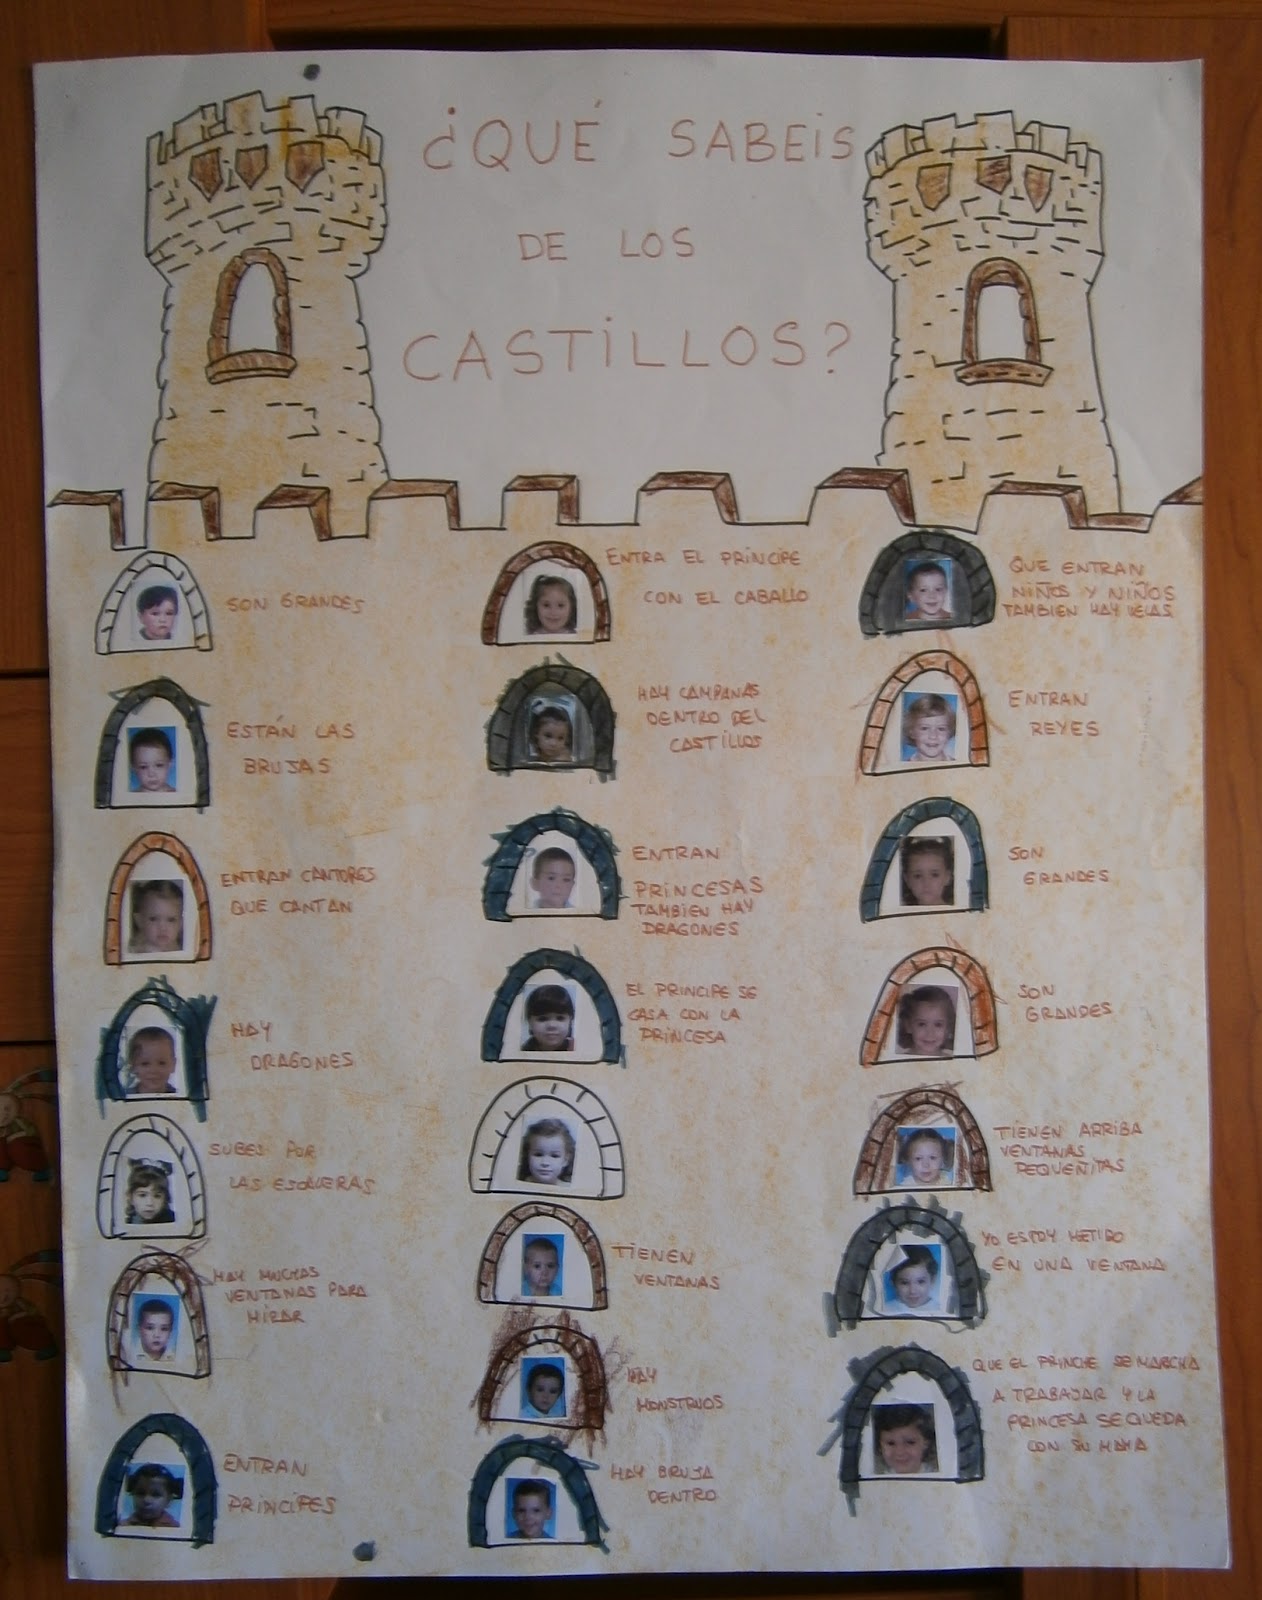 ¿QUÉ SABEIS
DE LOS
CASTILLOS?
SON GRANDES
ESTÁN LAS
BRUJAS
ENTRAN CANTORES
QUE CANTAN
HAY
DRAGONES
SUBES POR
LAS ESCALERAS
HAY MUCHAS
VENTANAS PARA
MIRAR
ENTRAN
PRINCIPES
ENTRA EL PRINCIPE
CON EL CABALLO
HAY CAMPANAS
DENTRO DEL
CASTILLOS
ENTRAN
PRINCESAS
TAMBIEN HAY
DRAGONES
EL PRINCIPE SE
CASA CON LA
PRINCESA
TIENEN
VENTANAS
HAY
MONSTRUOS
HAY BRUJA
DENTRO
QUE ENTRAN
NIÑOS Y NIÑOS
TAMBIEN HAY VELAS
ENTRAN
REYES
SON
GRANDES
SON
GRANDES
TIENEN ARRIBA
VENTANAS
PEQUEÑITAS
YO ESTOY METIDO
EN UNA VENTANA
QUE EL PRINCIPE SE MARCHA
A TRABAJAR Y LA
PRINCESA SE QUEDA
CON SU MAMA